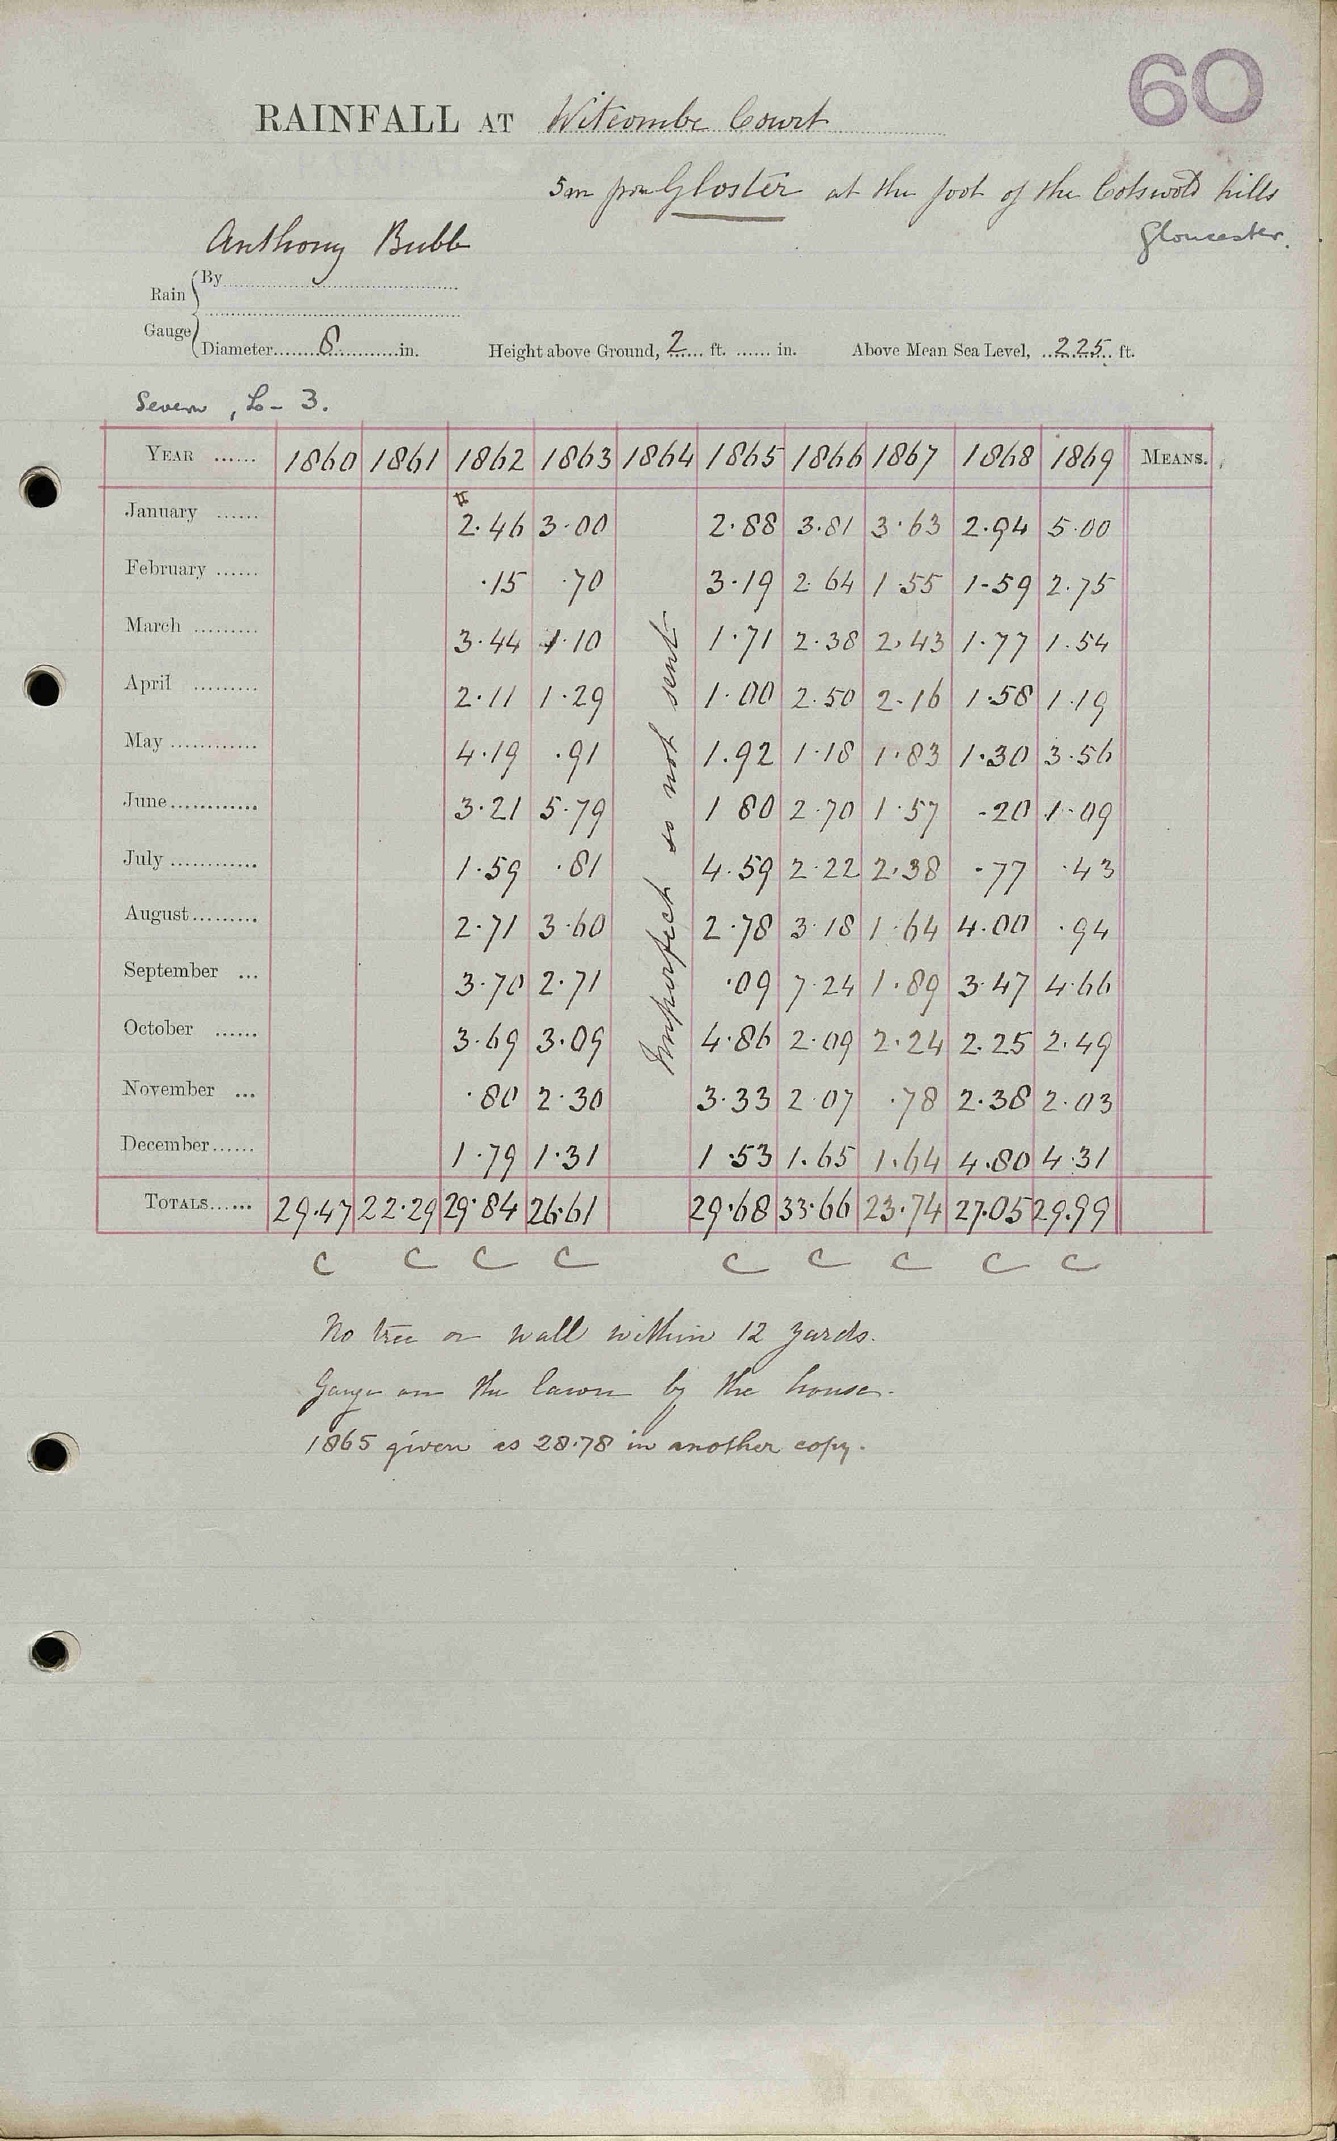 60
RAINFALL AT Witcombe Court
5m from Gloster at the foot of the Cotswold hills
Gloucester.
Anthony Bubb
Rain Gauge { By
Diameter 8 in. Height above Ground, 2 ft. in. Above Mean Sea Level, 225 ft.
Severn, Lo- 3.
YEAR 1860 1861 1862 1863 1864 1865 1866 1867 1868 1869 MEANS.
January 2.46 3.00 2.88 3.81 3.63 2.94 5.00
February .15 .70 3.19 2.64 1.55 1.59 2.75
March 3.44 1.10 1.71 2.38 2.43 1.77 1.54
April 2.11 1.29 1.00 2.50 2.16 1.58 1.19
May 4.19 .91 1.92 1.18 1.83 1.30 3.56
June 3.21 5.79 1.80 2.70 1.57 .20 1.09
July 1.59 .81 4.59 2.22 2.38 .77 .43
August 2.71 3.60 2.78 3.18 1.64 4.00 .94
September 3.70 2.71 .09 7.24 1.89 3.47 4.66
October 3.69 3.09 4.86 2.09 2.24 2.25 2.49
November .80 2.30 3.33 2.07 .78 2.38 2.03
December 1.79 1.31 1.53 1.65 1.64 4.80 4.31
Imperfect so not sent
TOTALS 29.47 22.29 29.84 26.61 29.68 33.66 23.74 27.05 29.99
C C C C C C C C C
No tree or wall within 12 yards.
Gauge on the lawn by the house.
1865 given as 28.78 in another copy.